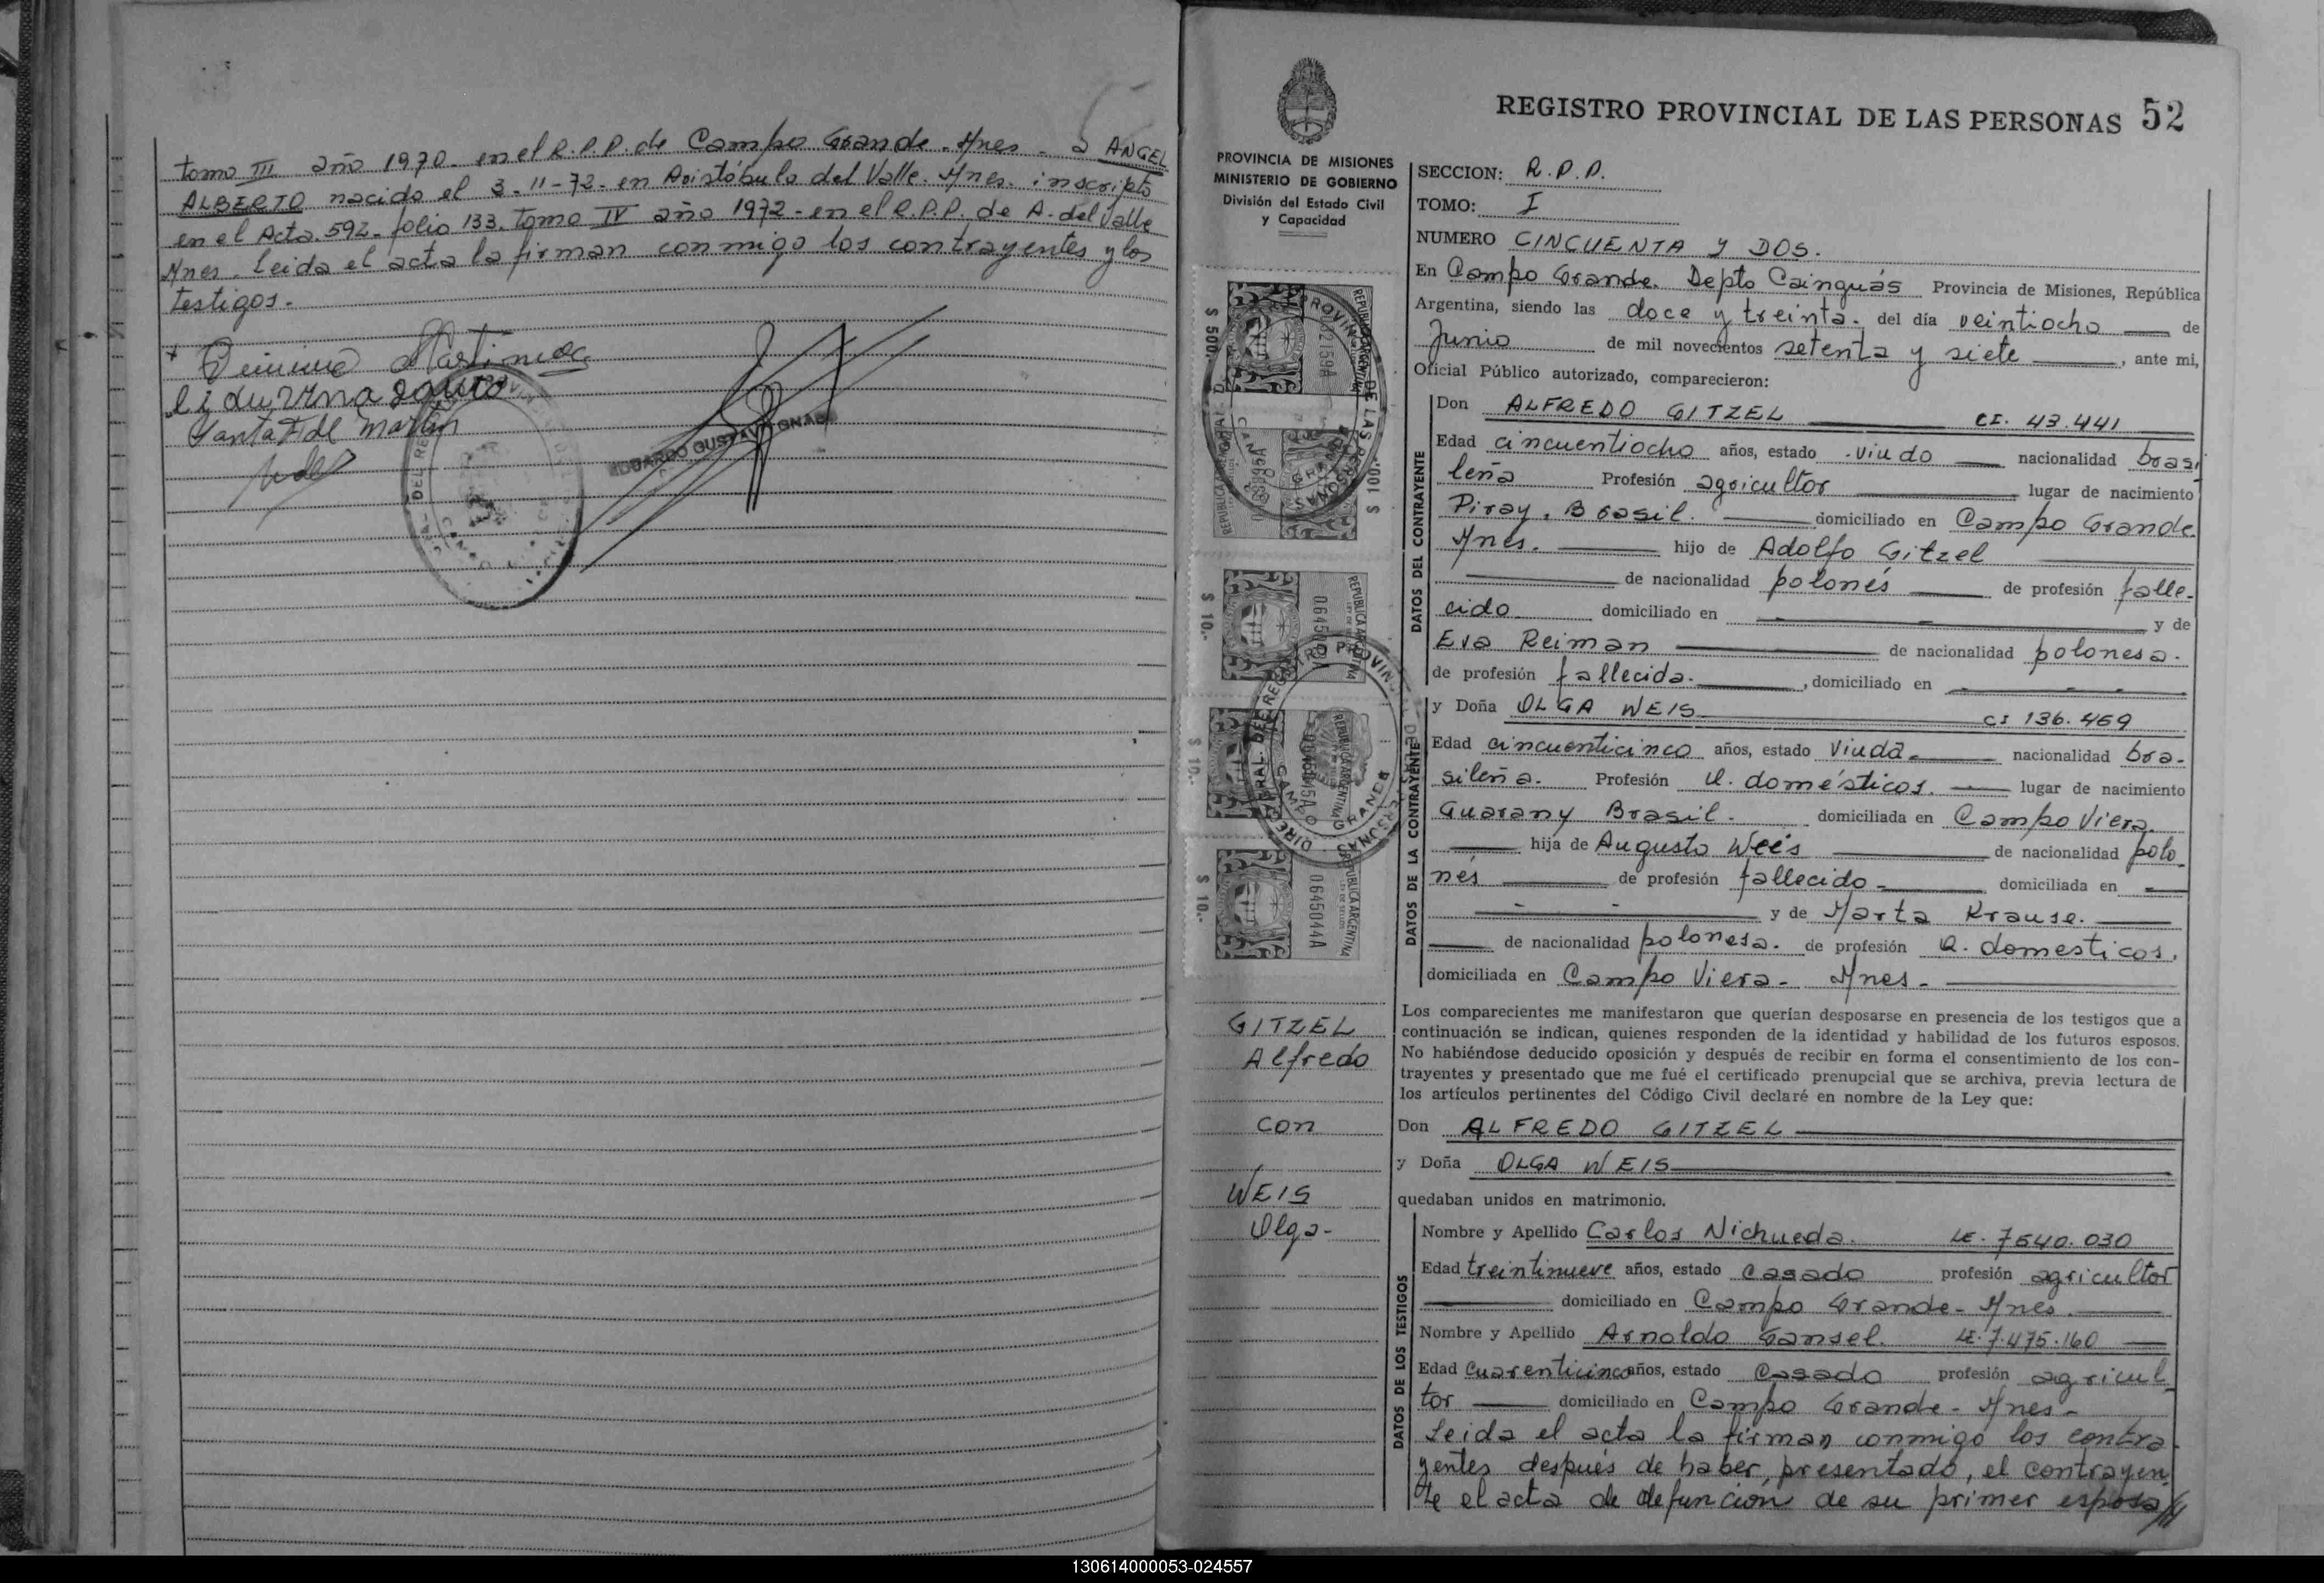 tomo III año 1970. en el R.P.P. de Campo Grande. Mnes - a ANGEL
ALBERTO nacido el 3-11-72- en Aristóbulo del Valle. Mnes. inscripto
en el Acta. 592- folio 133. tomo IV año 1972- en el R.P.P. de A. del Valle
Mnes. leida el acta la firman conmigo los contrayentes y los
testigos-
EDUARDO GUSTAVO
REGISTRO PROVINCIAL DE LAS PERSONAS 52
PROVINCIA DE MISIONES
MINISTERIO DE GOBIERNO
División del Estado Civil
y Capacidad
SECCION: R.P.P.
TOMO: I
NUMERO CINCUENTA Y DOS.
En Campo Grande. Depto Cainguás Provincia de Misiones, República
Argentina, siendo las doce y treinta. del día veintiocho de
Junio de mil novecientos setenta y siete, ante mi,
Oficial Público autorizado, comparecieron:
DATOS DEL CONTRAYENTE
Don ALFREDO GITZEL CI. 43.441
Edad cincuentiocho años, estado viudo nacionalidad brasi
leña Profesión agricultor lugar de nacimiento
Piray. Brasil. domiciliado en Campo Grande
Mnes. hijo de Adolfo Gitzel
de nacionalidad polonés de profesión falle-
cido domiciliado en y de
Eva Reiman de nacionalidad polonesa.
de profesión fallecida. , domiciliado en
DATOS DE LA CONTRAYENTE
y Doña OLGA WEIS CI 136.469
Edad cincuenticinco años, estado viuda nacionalidad bra-
sileña. Profesión Q. domésticos. lugar de nacimiento
Guarany Brasil. domiciliada en Campo Viera.
hija de Augusto Weis de nacionalidad polo
nés de profesión fallecido domiciliada en
y de Marta Krause.
de nacionalidad polonesa. de profesión Q. domesticos.
domiciliada en Campo Viera- Mnes-
Los comparecientes me manifestaron que querían desposarse en presencia de los testigos que a
continuación se indican, quienes responden de la identidad y habilidad de los futuros esposos.
No habiéndose deducido oposición y después de recibir en forma el consentimiento de los con-
trayentes y presentado que me fué el certificado prenupcial que se archiva, previa lectura de
los artículos pertinentes del Código Civil declaré en nombre de la Ley que:
Don ALFREDO GITZEL
y Doña OLGA WEIS
quedaban unidos en matrimonio.
DATOS DE LOS TESTIGOS
Nombre y Apellido Carlos Nichueda. LE. 7540.030
Edad treintinueve años, estado casado profesión agricultor
domiciliado en Campo Grande- Mnes.
Nombre y Apellido Arnoldo Gansel. LE. 7.475.160
Edad cuarenticinco años, estado casado profesión agricul
tor domiciliado en Campo Grande- Mnes-
Leida el acta la firman conmigo los contra-
yentes después de haber, presentado, el contrayen
te el acta de defunción de su primer esposa//
GITZEL
Alfredo
con
WEIS
Olga-
$ 500.-
$ 100.-
$ 10.-
$ 10.-
$ 10.-
REPUBLICA ARGENTINA
0645044A
130614000053-024557